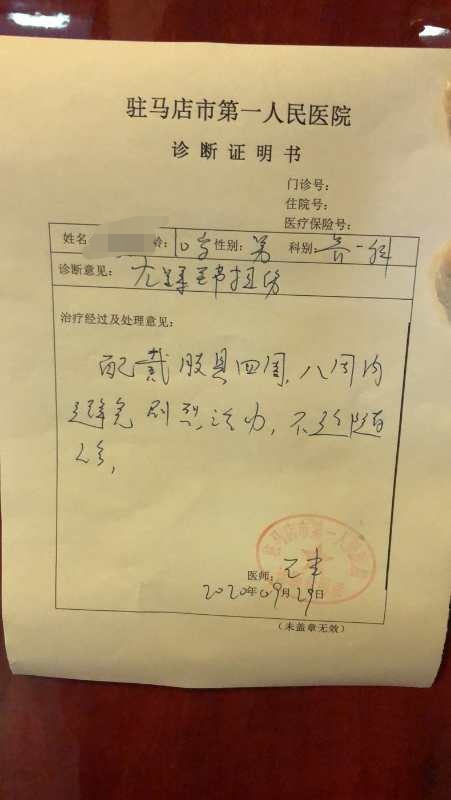 驻马店市第一人民医院
诊断证明书
门诊号:
住院号:
医疗保险号:
姓名 龄: 岁 性别: 男 科别: 骨一科
诊断意见: 扭伤
治疗经过及处理意见:
配戴肢具四周,八周内
避免剧烈活动,不适随
诊,
驻马店市第一人民
医师:
2020年09月29日
(未盖章无效)